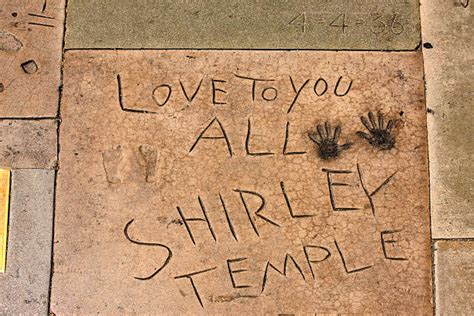 4-4-36
LOVE TO YOU
ALL
SHIRLEY
TEMPLE